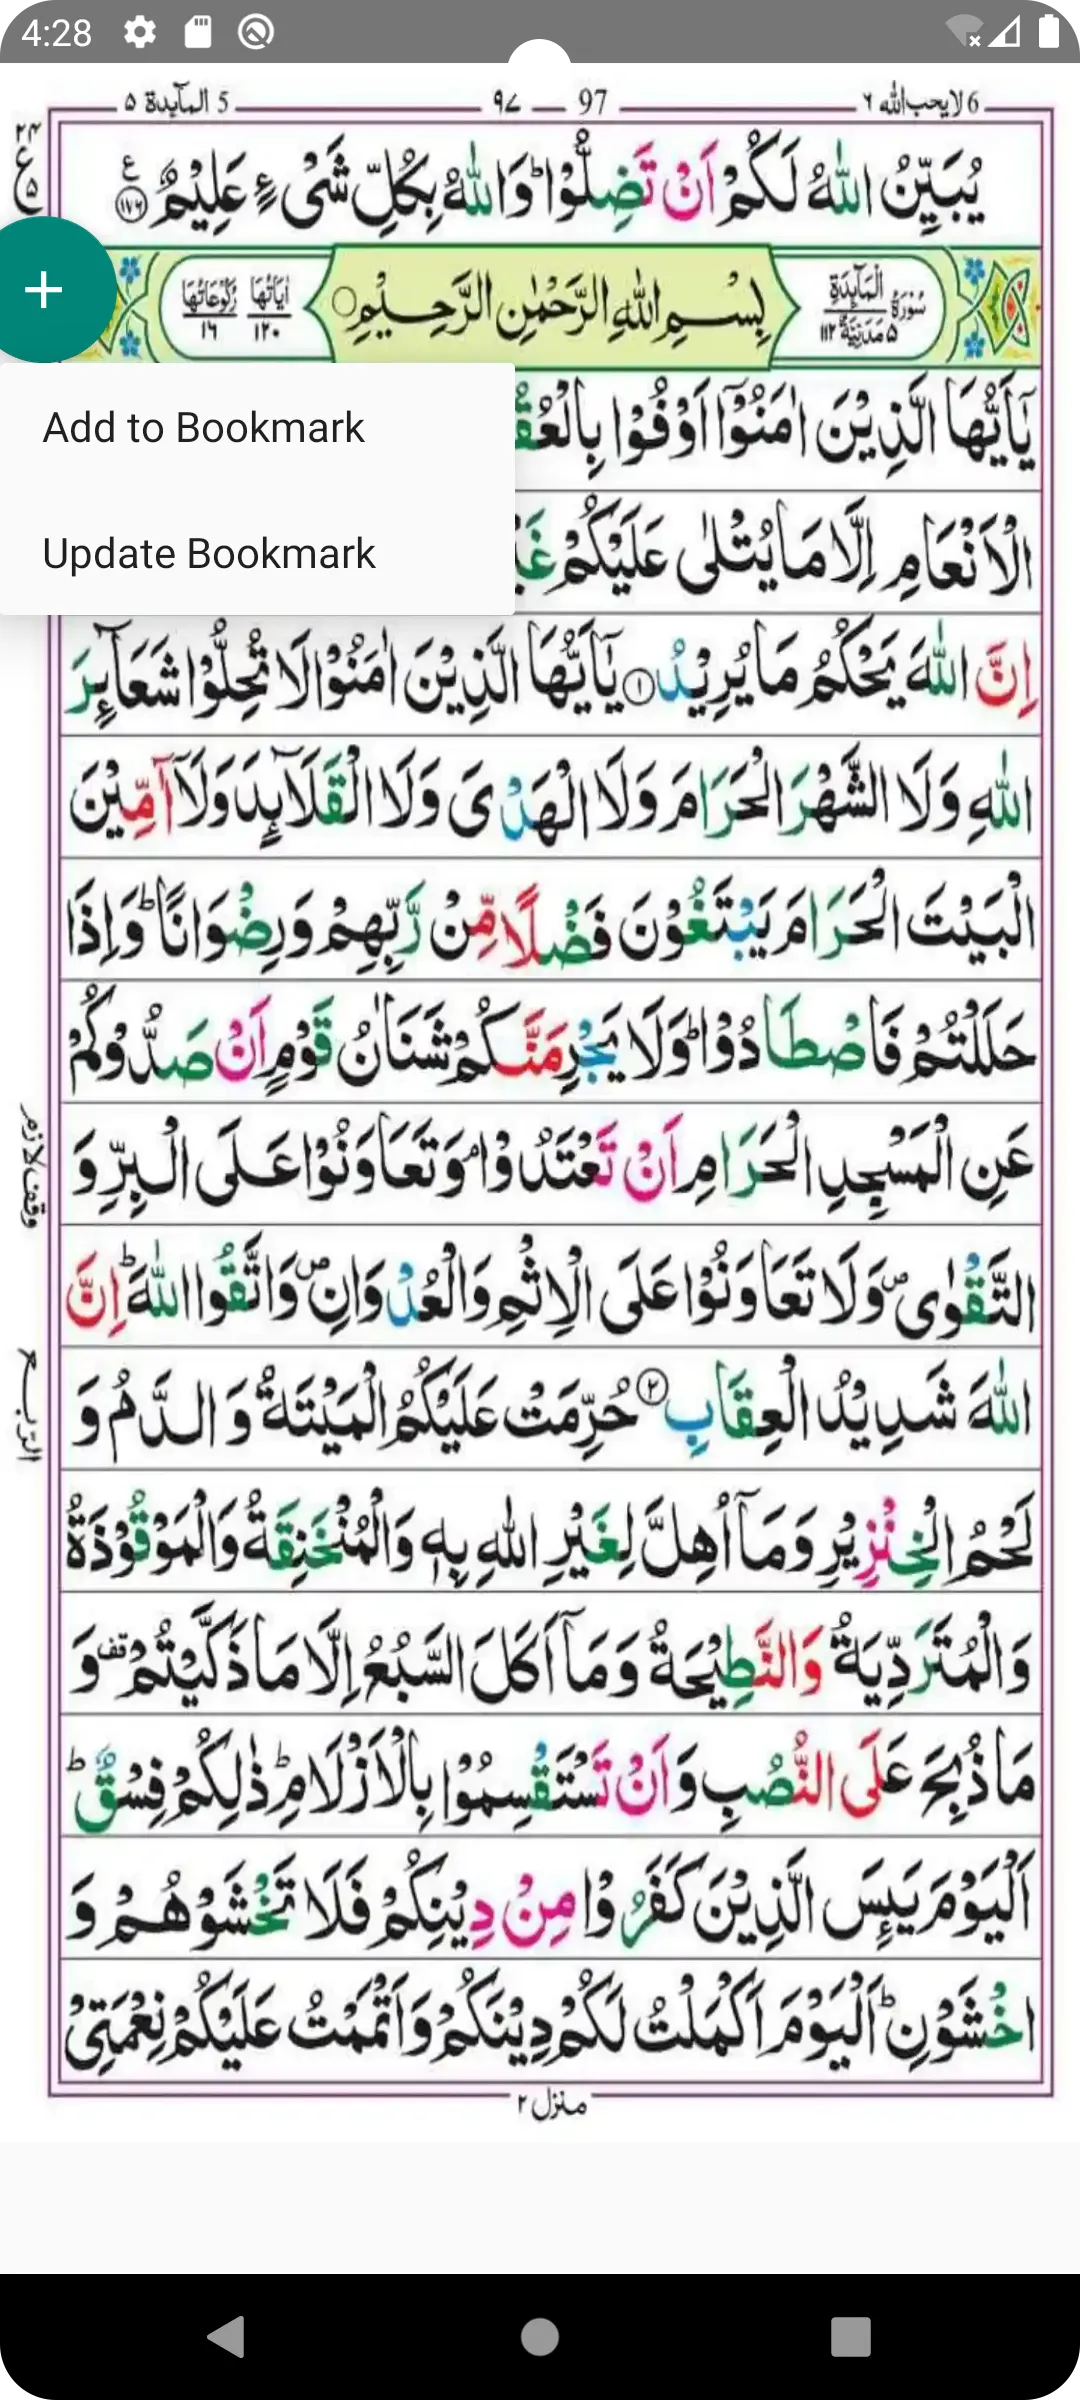 4:28
5 المآىِٕدة ۵
۹۷ — 97
6 لايحب الله ۶
۲۴
ع
۵
يُبَيِّنُ اللّٰهُ لَكُمْ اَنْ تَضِلُّوْا ؕ وَاللّٰهُ بِكُلِّ شَىْءٍ عَلِيْمٌ ۱۷۶ ع
سُوْرَةُ الْمَآىِٕدَةِ ۵ مَدَنِيَّةٌ ۱۱۲
بِسْمِ اللّٰهِ الرَّحْمٰنِ الرَّحِيْمِ
اٰيَاتُهَا ۱۲۰
رُكُوْعَاتُهَا ۱۶
+
Add to Bookmark
Update Bookmark
يٰۤاَيُّهَا الَّذِيْنَ اٰمَنُوْۤا اَوْفُوْا
الْاَنْعَامِ اِلَّا مَا يُتْلٰى عَلَيْكُمْ
اِنَّ اللّٰهَ يَحْكُمُ مَا يُرِيْدُ ۱ يٰۤاَيُّهَا الَّذِيْنَ اٰمَنُوْا لَا تُحِلُّوْا شَعَآىِٕرَ
اللّٰهِ وَلَا الشَّهْرَ الْحَرَامَ وَلَا الْهَدْىَ وَلَا الْقَلَآىِٕدَ وَلَاۤ آٰمِّيْنَ
الْبَيْتَ الْحَرَامَ يَبْتَغُوْنَ فَضْلًا مِّنْ رَّبِّهِمْ وَرِضْوَانًا ؕ وَاِذَا
حَلَلْتُمْ فَاصْطَادُوْا ؕ وَلَا يَجْرِمَنَّكُمْ شَنَاٰنُ قَوْمٍ اَنْ صَدُّوْكُمْ
عَنِ الْمَسْجِدِ الْحَرَامِ اَنْ تَعْتَدُوْا ۘ وَتَعَاوَنُوْا عَلَى الْبِرِّ وَ
وقف لازم
التَّقْوٰى ۪ وَلَا تَعَاوَنُوْا عَلَى الْاِثْمِ وَالْعُدْوَانِ ۪ وَاتَّقُوا اللّٰهَ ؕ اِنَّ
اللّٰهَ شَدِيْدُ الْعِقَابِ ۲ حُرِّمَتْ عَلَيْكُمُ الْمَيْتَةُ وَ الدَّمُ وَ
الربع
لَحْمُ الْخِنْزِيْرِ وَمَاۤ اُهِلَّ لِغَيْرِ اللّٰهِ بِهٖ وَالْمُنْخَنِقَةُ وَالْمَوْقُوْذَةُ
وَالْمُتَرَدِّيَةُ وَالنَّطِيْحَةُ وَمَاۤ اَكَلَ السَّبُعُ اِلَّا مَا ذَكَّيْتُمْ قف وَ
مَا ذُبِحَ عَلَى النُّصُبِ وَ اَنْ تَسْتَقْسِمُوْا بِالْاَزْلَامِ ؕ ذٰلِكُمْ فِسْقٌ ؕ
اَلْيَوْمَ يَىِٕسَ الَّذِيْنَ كَفَرُوْا مِنْ دِيْنِكُمْ فَلَا تَخْشَوْهُمْ وَ
اخْشَوْنِ ؕ اَلْيَوْمَ اَكْمَلْتُ لَكُمْ دِيْنَكُمْ وَاَتْمَمْتُ عَلَيْكُمْ نِعْمَتِىْ
منزل ۲